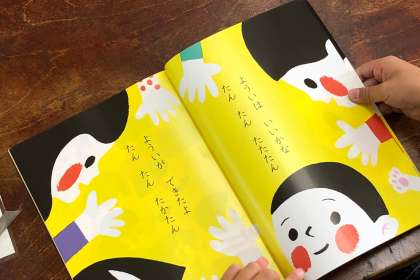 よういは いいかな
たん たん たたたん
よういが できたよ
たん たん たかたん